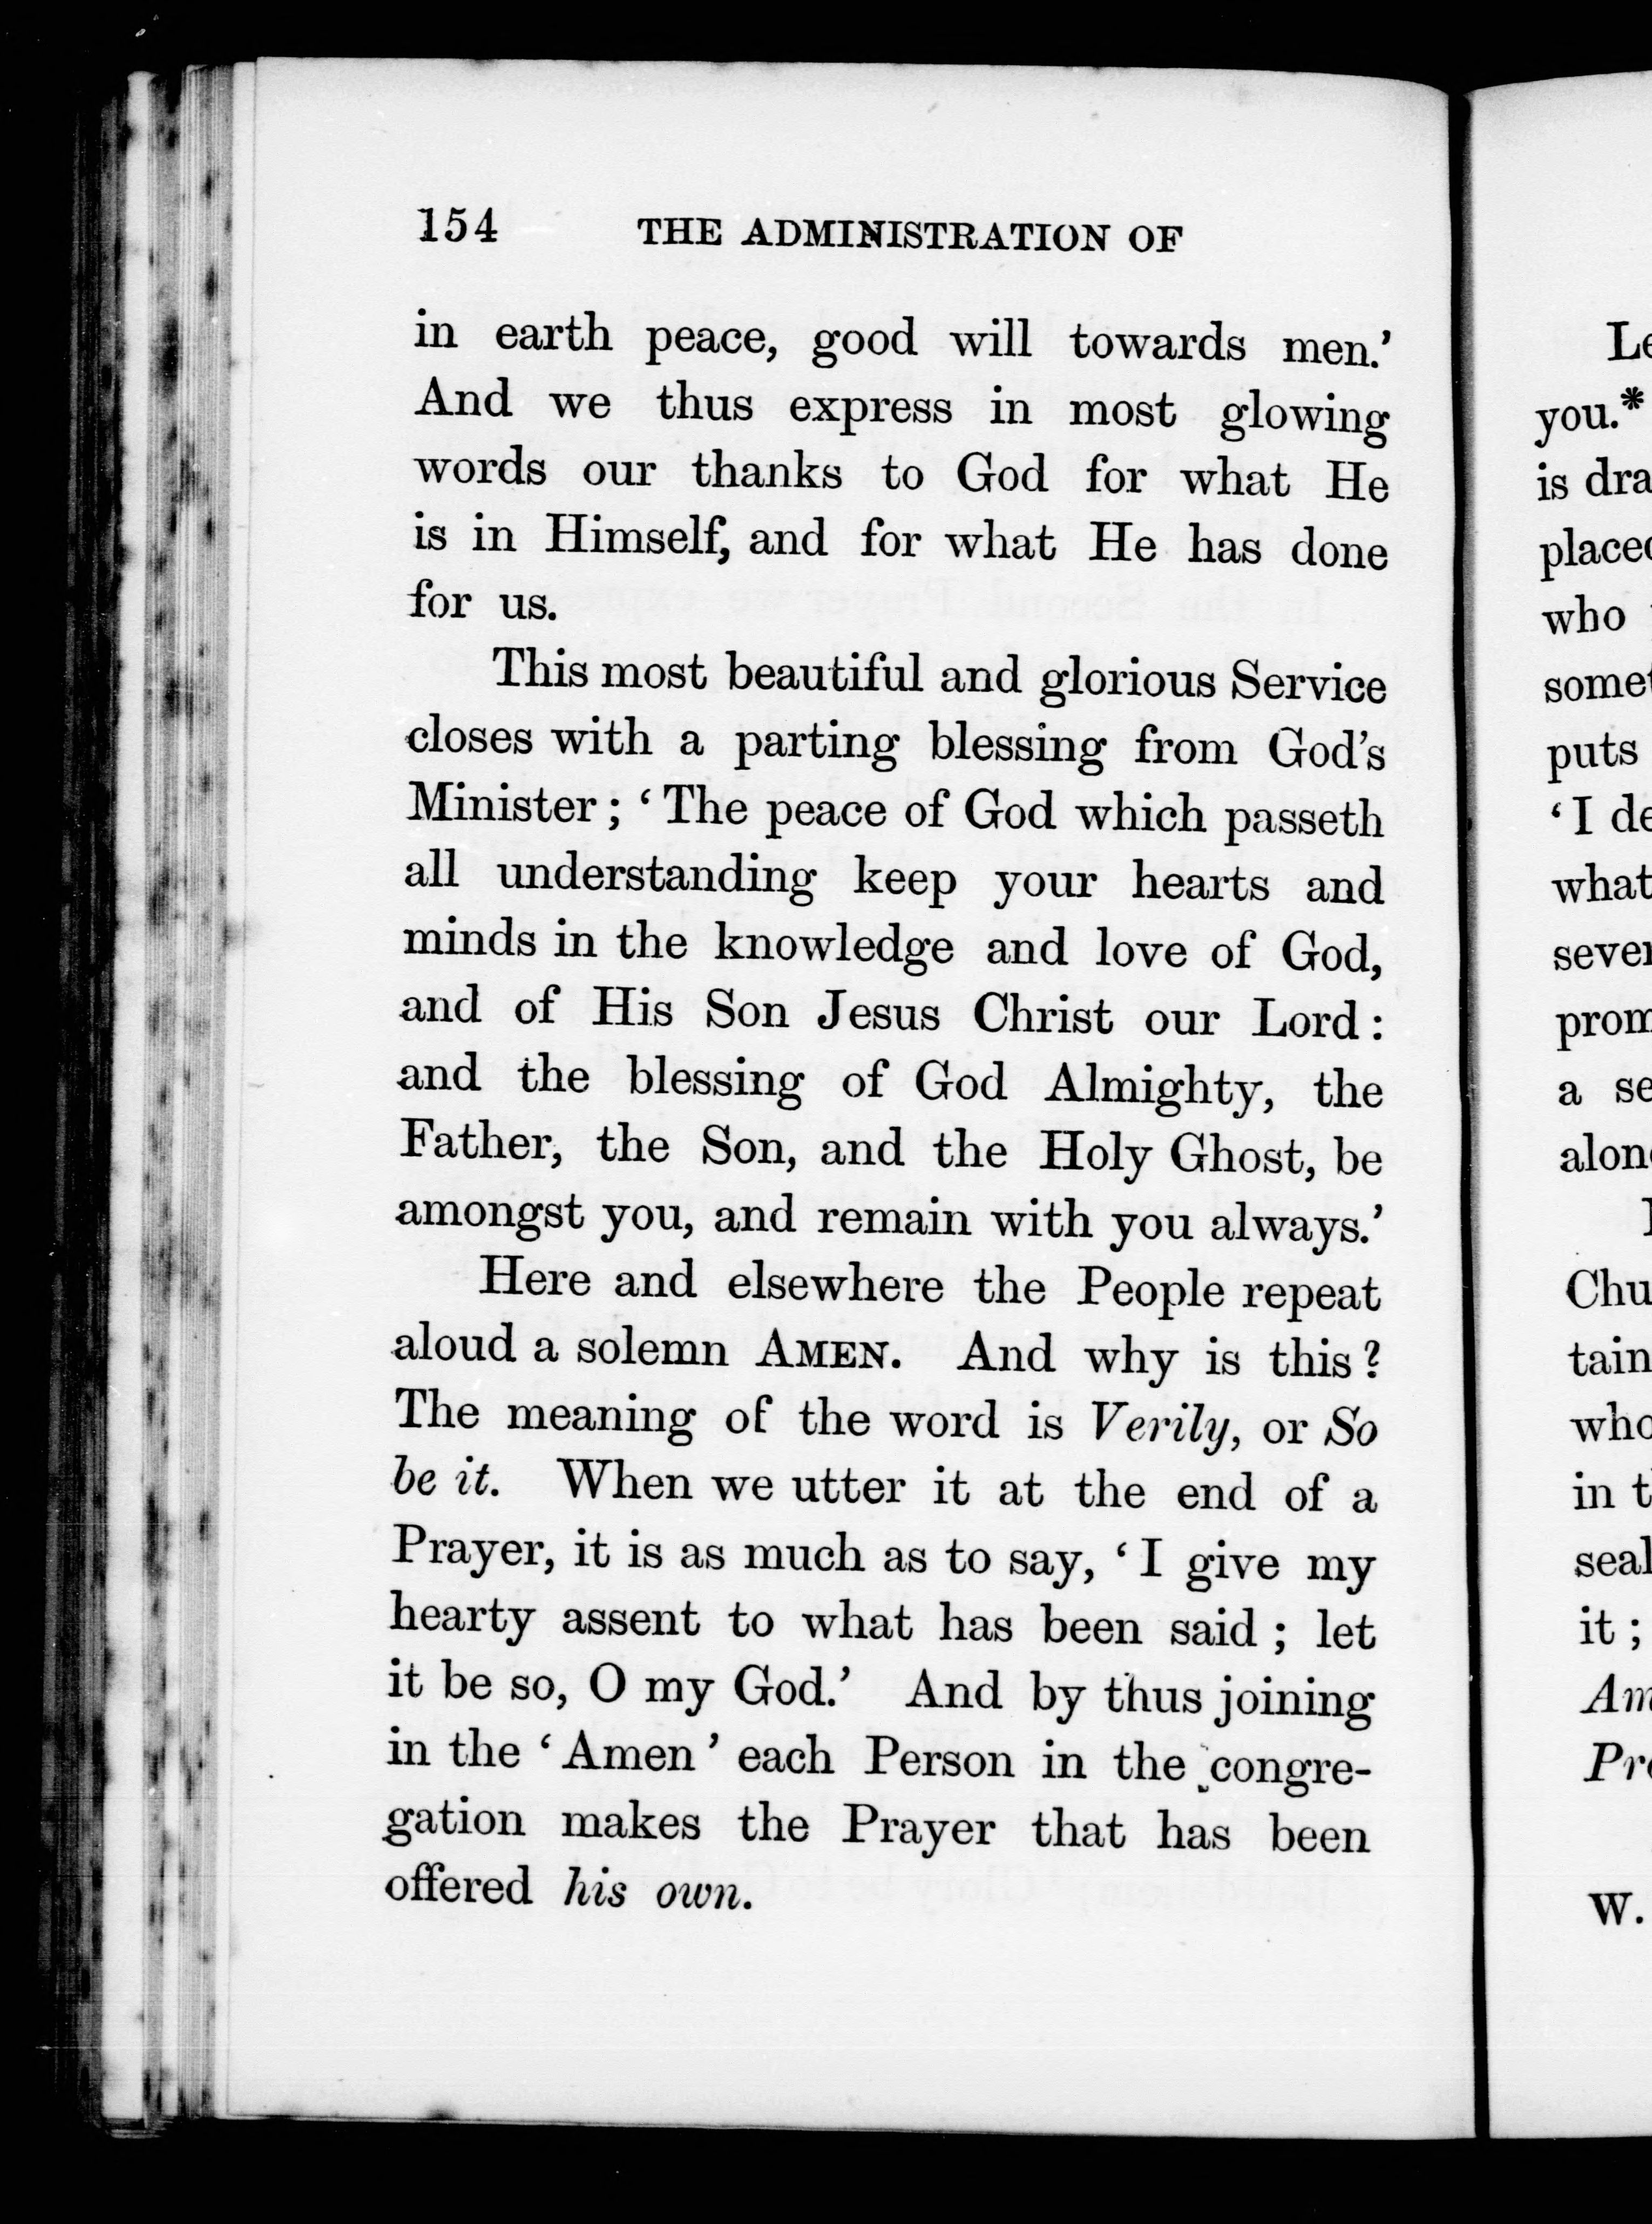 154 THE ADMINISTRATION OF
in earth peace, good will towards men.’
And we thus express in most glowing
words our thanks to God for what He
is in Himself, and for what He has done
for us.
This most beautiful and glorious Service
closes with a parting blessing from God’s
Minister; ‘The peace of God which passeth
all understanding keep your hearts and
minds in the knowledge and love of God,
and of His Son Jesus Christ our Lord:
and the blessing of God Almighty, the
Father, the Son, and the Holy Ghost, be
amongst you, and remain with you always.’
Here and elsewhere the People repeat
aloud a solemn AMEN. And why is this?
The meaning of the word is Verily, or So
be it. When we utter it at the end of a
Prayer, it is as much as to say, ‘I give my
hearty assent to what has been said; let
it be so, O my God.’ And by thus joining
in the ‘Amen’ each Person in the congre-
gation makes the Prayer that has been
offered his own.
you.*
is
who
puts
‘I
what
a
in
it;
W.